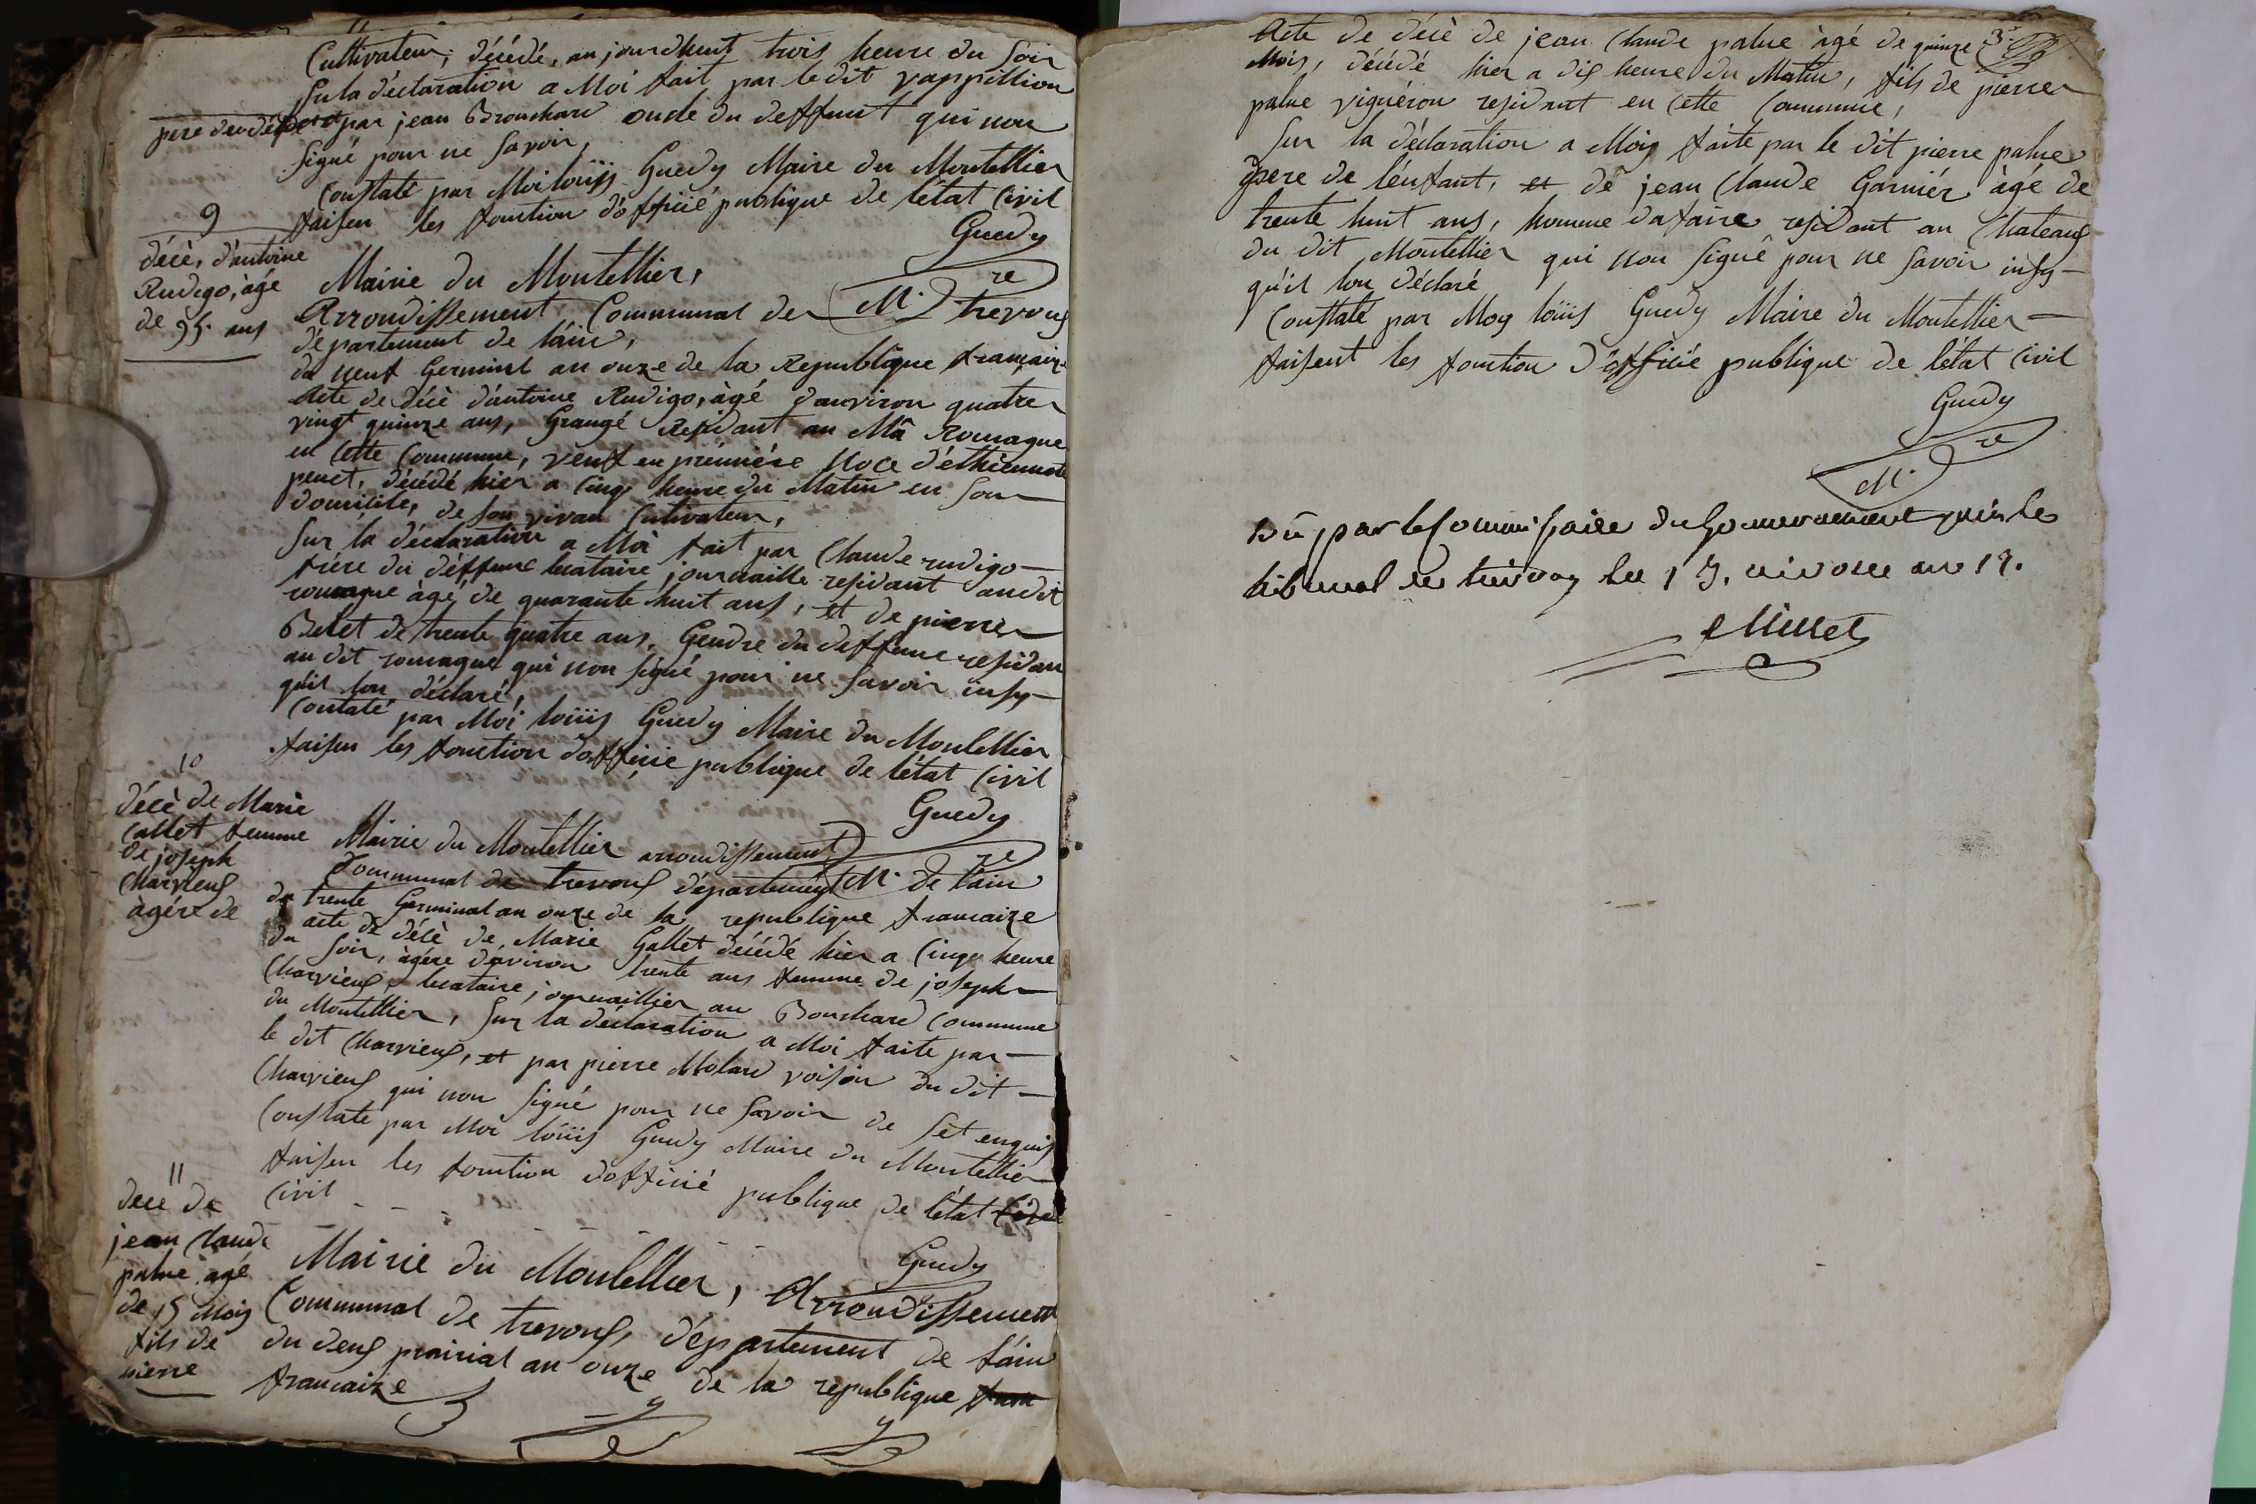 Cultivateur, décédé, aujourdhuit trois heure du Soir
Sur la déclaration a Moi fait par le dit pappillion
pere du dépend par jean Brouchard oncle du deffunt qui non
Signé pour ne Savoir,
Constaté par Moi loüis Guedy Maire du Montellier
faisen les fonction d'officié publique de l'état Civil
Guedy
Mre
9
décè, d'antoine
Rudigo, àgé
de 95. ans
Mairie du Montellier,
Arrondissement Communal de trevoux
département de l'áin,
du neuf Germinal an onze de la Republique francaize
Acte de décè d'antoine Rudigo, àgé d'anviron quatre
vingt quinze ans, Grangé Residant au Mâ Romagne
en Cette Commune, veuf en prémiére Noce d'éthiennete
penet, décédé hier a Cinq heure du Matin en Son
domicile, de Son vivan Cultivateur,
Sur la déclaration a Moi fait par Claude rudigo
frére du déffunt locataire journaillé residant au dit
romagne àgé de quarante huit ans, et de pierre
Belet de trente quatre ans, Gendre du deffunt residan
au dit romagne qui non Signé pour ne Savoir insy
qu'il lon déclaré,
Contaté par Moi loüis Guedy Maire du Montellier
faisen les fonction d'officié publique de l'état Civil
Guedy
Mre
10
décè de Marie
Callet femme
de joseph
Charvieux
àgére de
Mairie du Montellier arrondissement
Communal de trevoux département de l'ain
du trente Germinal an onze de la republique francaize
acte de décè de Marie Gallet décédé hier a Cinqu heure
du Soir, àgére d'anviron trente ans femme de joseph
Charvieux, locataire journaillier au Bouchard Commune
du Montellier, Sur la déclaration a Moi faite par
le dit Charvieux, et par pierre Molard voisin du dit
Charvieux qui non Signé pour ne Savoir de Set enquis
Constaté par Moi loüis Guedy Maire du Montellier
faisen les fonction d'officié publique de l'état
Civil
Guedy
11
decè de
jean Claude
palue àgé
de 15 Mois
fils de
pierre
Mairie du Montellier, Arrondissement
Communal de trevoux, département de l'ain
du deux prairial an onze de la republique
francaize
Acte de décè de jean Claude palue àgé de quinze
Mois, décédé hier a dix heure du Matin, fils de pierre
palue vignéron residant en Cette Commune,
Sur la déclaration a Moy faite par le dit pierre palue
pere de l'énfant, et de jean Claude Garniér àgé de
trente huit ans, homme dafaire residant au Chateaux
du dit Montellier qui non Signé pour ne Savoir insy
qu'il lon déclaré
Constaté par Moy loüis Guedy Maire du Montellier
faisent les fonction d'officié publique de l'état Civil
Guedy
Mre
Vû par le Commissaire du Gouvernement près le
tribunal de trévoux le 13. nivose an 12.
Millet